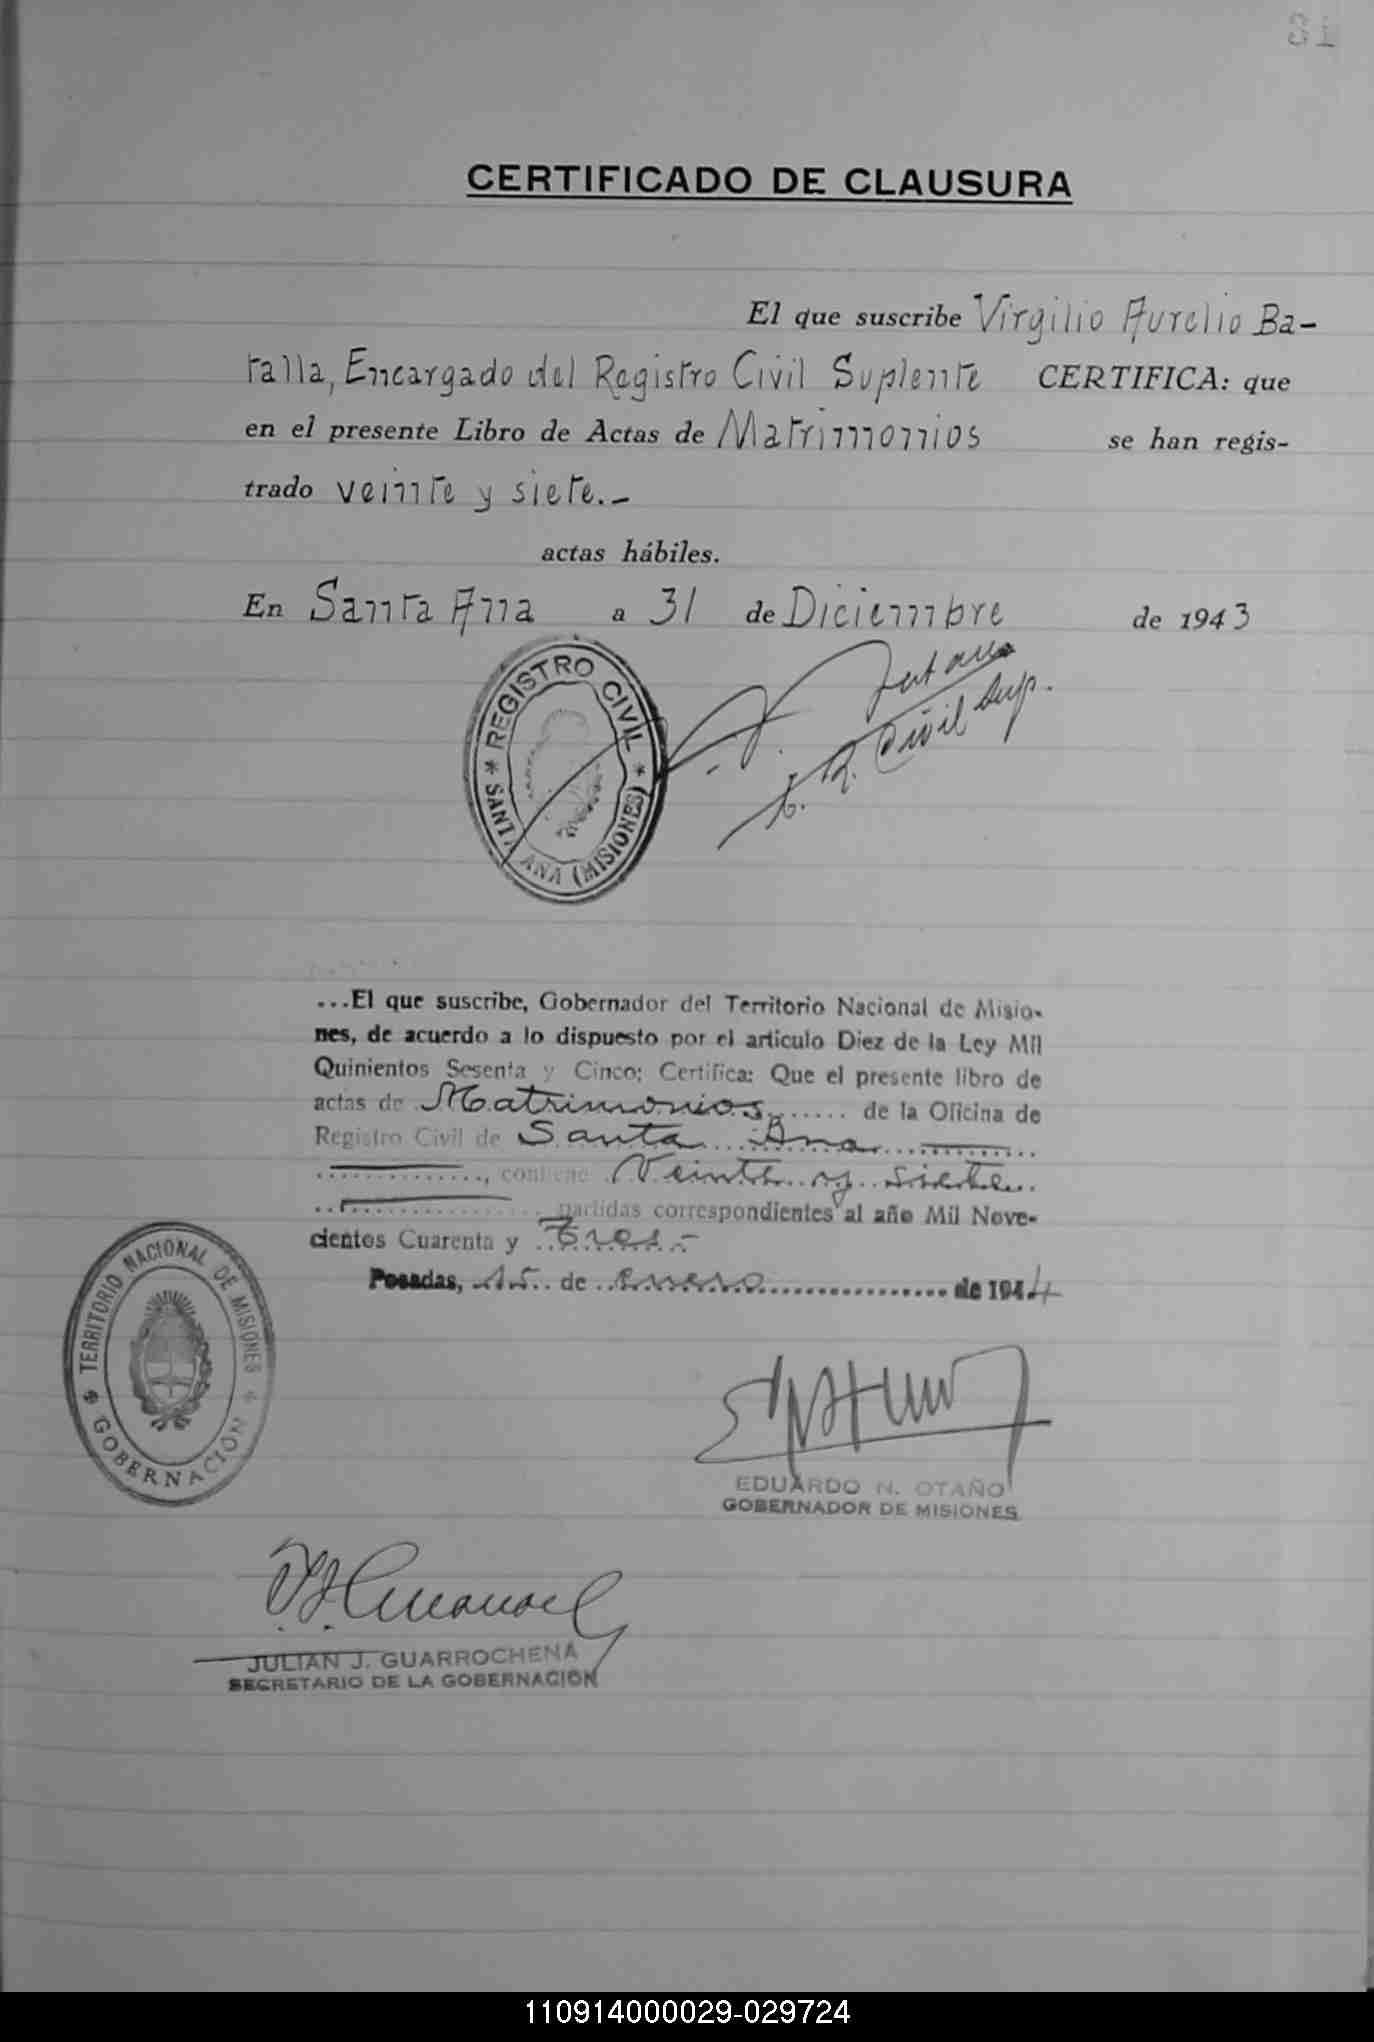 CERTIFICADO DE CLAUSURA
El que suscribe Virgilio Aurelio Ba-
talla, Encargado del Registro Civil Suplente CERTIFICA: que
en el presente Libro de Actas de Matrimonios se han regis-
trado veinte y siete.-
actas hábiles.
En Santa Ana a 31 de Diciembre de 1943
REGISTRO CIVIL
* SANTA ANA (MISIONES) *
E. R. Civil Sup.
...El que suscribe, Gobernador del Territorio Nacional de Misio-
nes, de acuerdo a lo dispuesto por el articulo Diez de la Ley Mil
Quinientos Sesenta y Cinco; Certifica: Que el presente libro de
actas de Matrimonios...... de la Oficina de
Registro Civil de Santa Ana
contiene Veinte y siete
partidas correspondientes al año Mil Nove-
cientos Cuarenta y Tres.-
Posadas, 15 de Enero de 1944
TERRITORIO NACIONAL DE MISIONES
* GOBERNACIÓN *
EDUARDO N. OTAÑO
GOBERNADOR DE MISIONES
JULIAN J. GUARROCHENA
SECRETARIO DE LA GOBERNACIÓN
110914000029-029724